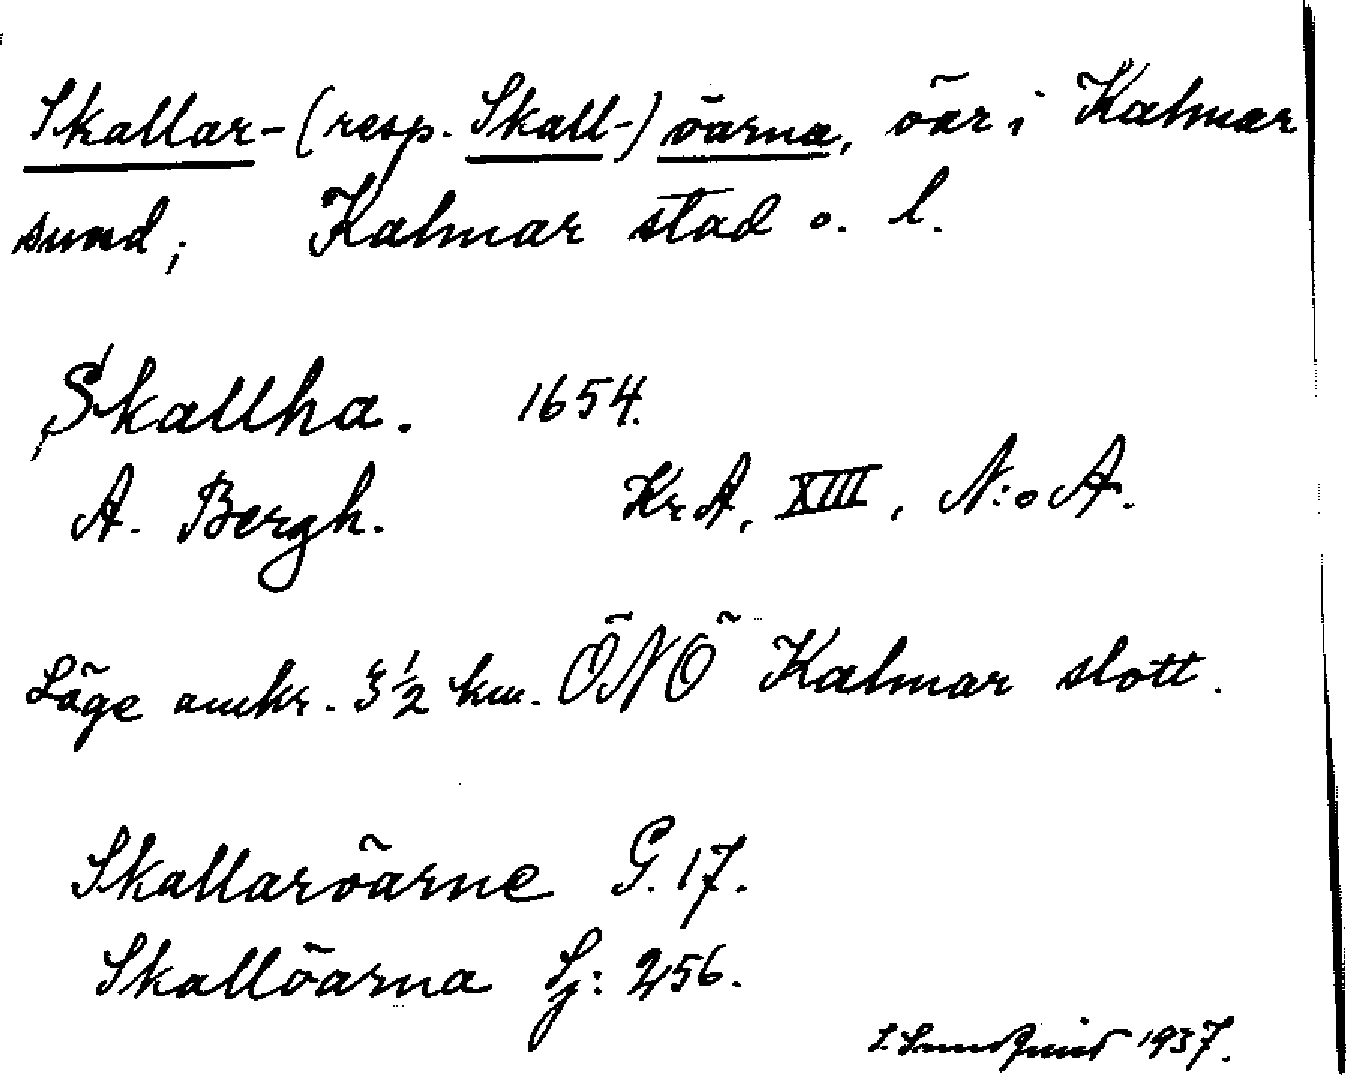 Skallar- (resp. Skall-) öarna, öar i Kalmar
sund; Kalmar stad o. l.
Skallha. 1654.
A. Bergh. Kr. A. XIII, N:o A.
Läge omkr. 3 1/2 km. ÖNÖ Kalmar slott.
Skallaröarne G. 17.
Skallöarna Sj: 256.
1937.